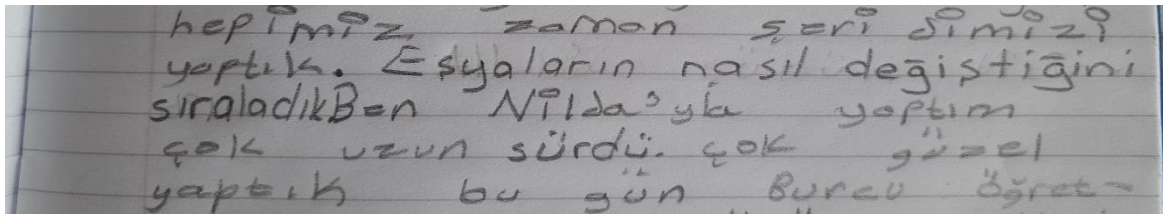 hepimiz zaman şeri dimizi
yaptık. Eşyaların nasıl değiştiğini
sıraladıkBen Nilda'yla yaptım
çok uzun sürdü. çok güzel
yaptık bu gün Burcu Öğret-